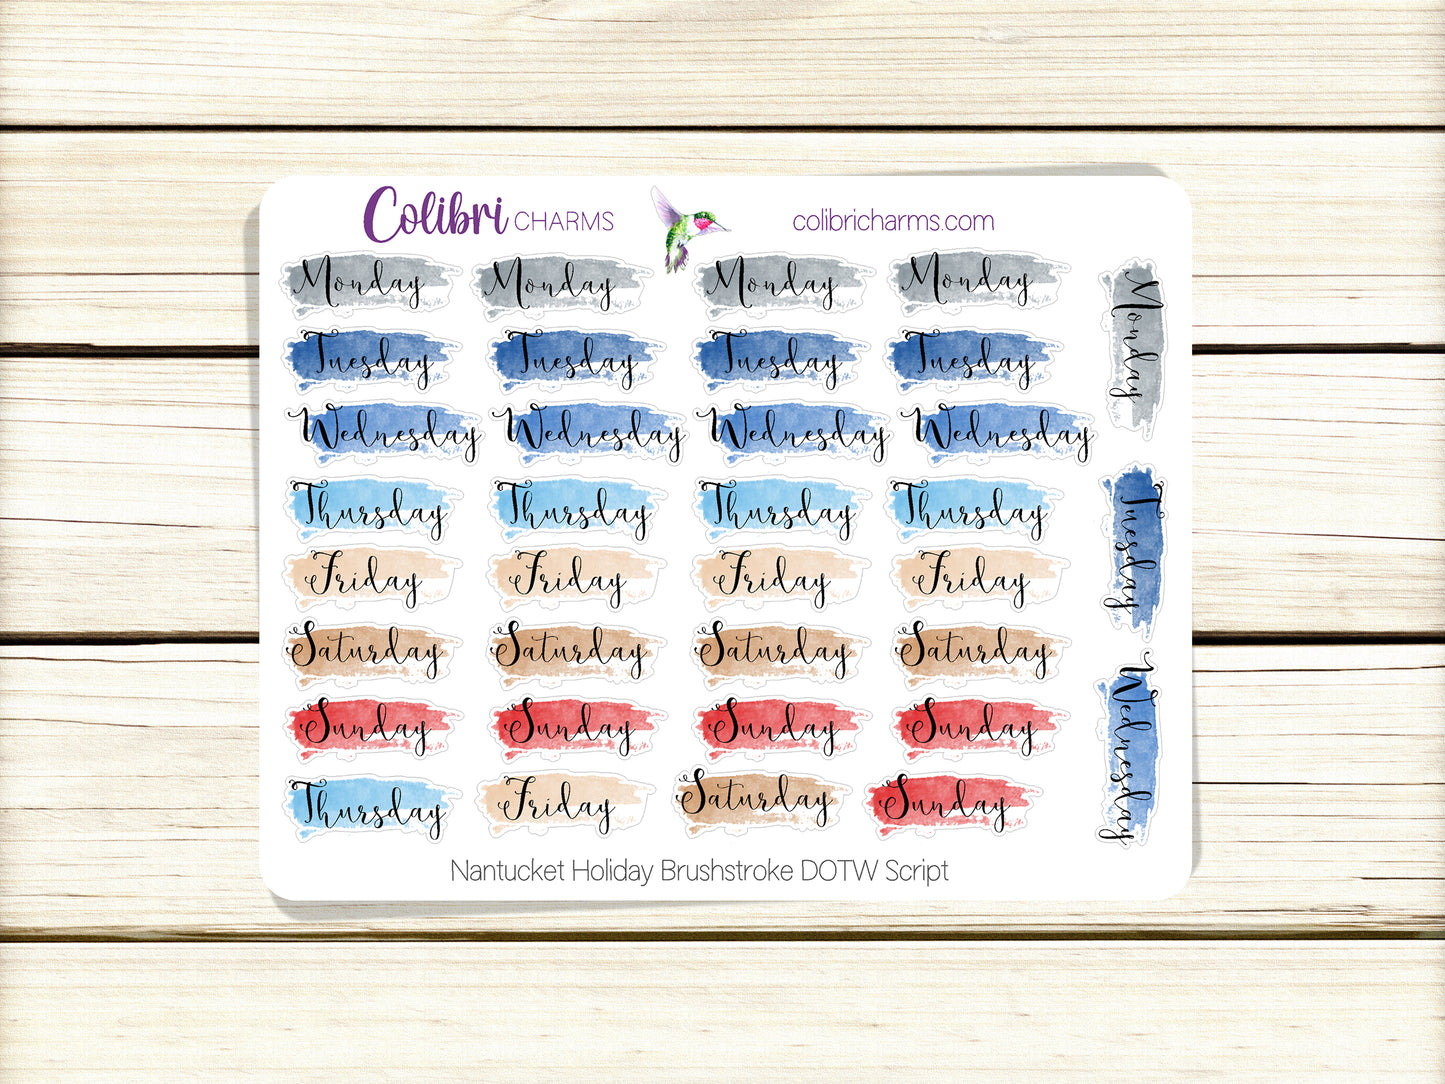 Colibri CHARMS colibricharms.com
Monday Monday Monday Monday Monday
Tuesday Tuesday Tuesday Tuesday
Wednesday Wednesday Wednesday Wednesday
Thursday Thursday Thursday Thursday Tuesday
Friday Friday Friday Friday
Saturday Saturday Saturday Saturday
Sunday Sunday Sunday Sunday Wednesday
Thursday Friday Saturday Sunday
Nantucket Holiday Brushstroke DOTW Script